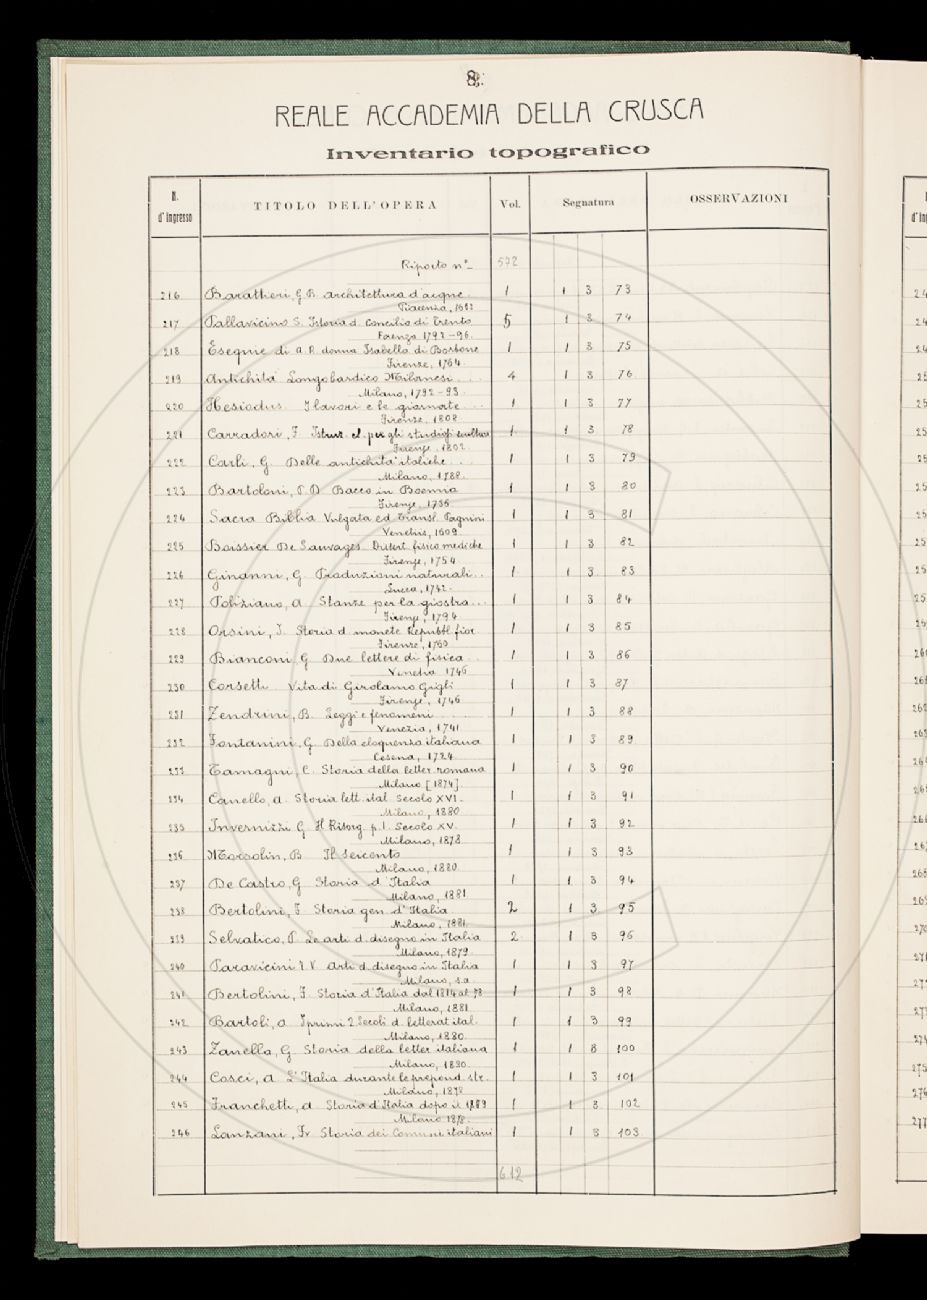 8.
REALE ACCADEMIA DELLA CRUSCA
Inventario topografico
N. d'ingresso TITOLO DELL'OPERA Vol. Segnatura OSSERVAZIONI
Riporto n° 572
216 Barattieri, G.B. Architettura d'acque. 1 1 3 73
Piacenza, 16
217 Pallavicino S. Istoria d. Concilio di Trento 5 1 3 74
Faenza 1792-96.
218 Esequie di A.R. donna Isabella di Borbone 1 1 3 75
Firenze, 1764.
219 Antichità Longobardico Milanesi... 4 1 3 76
Milano, 1792-93.
220 Hesiodus. I lavori e le giornate... 1 1 3 77
Firenze, 1808
221 Carradori, F. Istruz. el. per gli studiosi scultura 1 1 3 78
Firenze, 1802.
222 Carli, G. Delle antichità italiche... 1 1 3 79
Milano, 1788.
223 Bartoloni, P.D. Bacco in Boemia 1 1 3 80
Firenze, 1736.
224 Sacra Biblia Vulgata ed Transl. Pagnini 1 1 3 81
Venetiis, 1609.
225 Boissier De Sauvages Dissert. fisico mediche 1 1 3 82
Firenze, 1754
226 Ginanni, G. Produzioni naturali... 1 1 3 83
Lucca, 1742.
227 Poliziano, A. Stanze per la giostra... 1 1 3 84
Firenze, 1794
228 Orsini, I. Storia d. monete Repubbl. fior. 1 1 3 85
Firenze, 1760
229 Bianconi, G. Due lettere di fisica.. 1 1 3 86
Venetia 1746
230 Corsetti Vita di Girolamo Gigli 1 1 3 87
Firenze, 1746
231 Zendrini, B. Leggi e fenomeni..... 1 1 3 88
Venezia, 1741
232 Fontanini, G. Della eloquenza italiana 1 1 3 89
Cesena, 1724
233 Tamagni, C. Storia della letter. romana 1 1 3 90
Milano [1874].
234 Canello, A. Storia lett. ital. Secolo XVI. 1 1 3 91
Milano, 1880
235 Invernizzi G. Il Risorg. p.I. Secolo XV. 1 1 3 92
Milano, 1878
236 Morsolin, B. Il Seicento 1 1 3 93
Milano, 1880
237 De Castro, G. Storia d'Italia 1 1 3 94
Milano, 1881
238 Bertolini, F. Storia gen. d'Italia 2 1 3 95
Milano, 1881.
239 Selvatico, P. Le arti d. disegno in Italia 2 1 3 96
Milano, 1879.
240 Paravicini T.V. Arti d. disegno in Italia 1 1 3 97
Milano, s.a
241 Bertolini, F. Storia d'Italia dal 1814 al 78 1 1 3 98
Milano, 1881
242 Bartoli, A. I primi 2 Secoli d. letterat. ital. 1 1 3 99
Milano, 1880.
243 Zanella, G. Storia della letter. italiana 1 1 3 100
Milano, 1880.
244 Cosci, A. L'Italia durante le prepond. str. 1 1 3 101
Milano, 187
245 Franchetti, A. Storia d'Italia dopo il 1789 1 1 3 102
Milano 187
246 Lanzani, Fr. Storia dei Comuni italiani 1 1 3 103
612